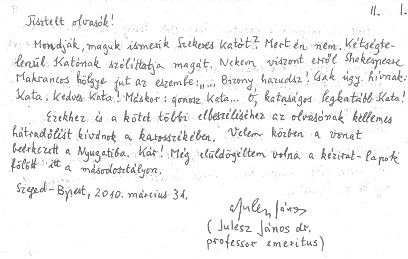 II. I.
Tisztelt olvasók!
Mondják, maguk ismerik Szekeres Katót? Mert én nem. Kétségte-
lenül Katónak szólíttatja magát. Nekem viszont erről Shakespeare
Makrancos hölgye jut az eszembe: „... Bizony hazudsz! Csak úgy hívnak:
Kata, Kedves Kata! Máskor: gonosz Kata... Ó, kataságos legkatább Kata!
Ezekhez is a kötet többi elbeszéléséhez az olvasónak kellemes
hátradőlést kívánok a karosszékében. Velem közben a vonat
beérkezett a Nyugatiba. Kár! Még elüldögéltem volna a kézirat-lapok
fölött itt a másodosztályon.
Szeged-Bpest, 2010. március 31.
Julesz János
(Julesz János dr.
professor emeritus)